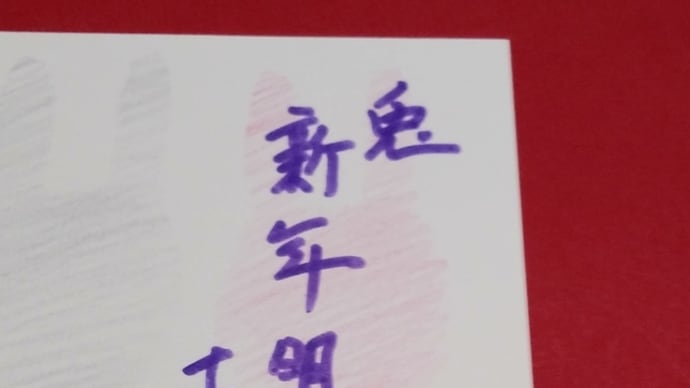 兎
新年明